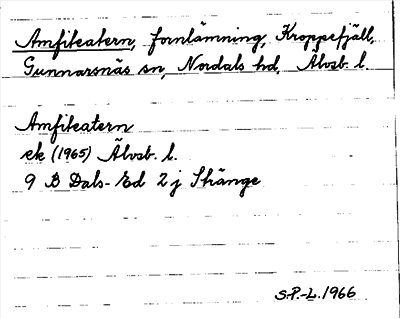 Amfiteatern, fornlämning, Kroppefjäll,
Gunnarsnäs sn, Nordals hd, Älvsb. l.
Amfiteatern
ek (1965) Älvsb. l.
9 B Dals-Ed 2 j Stränge
S.P.-L. 1966